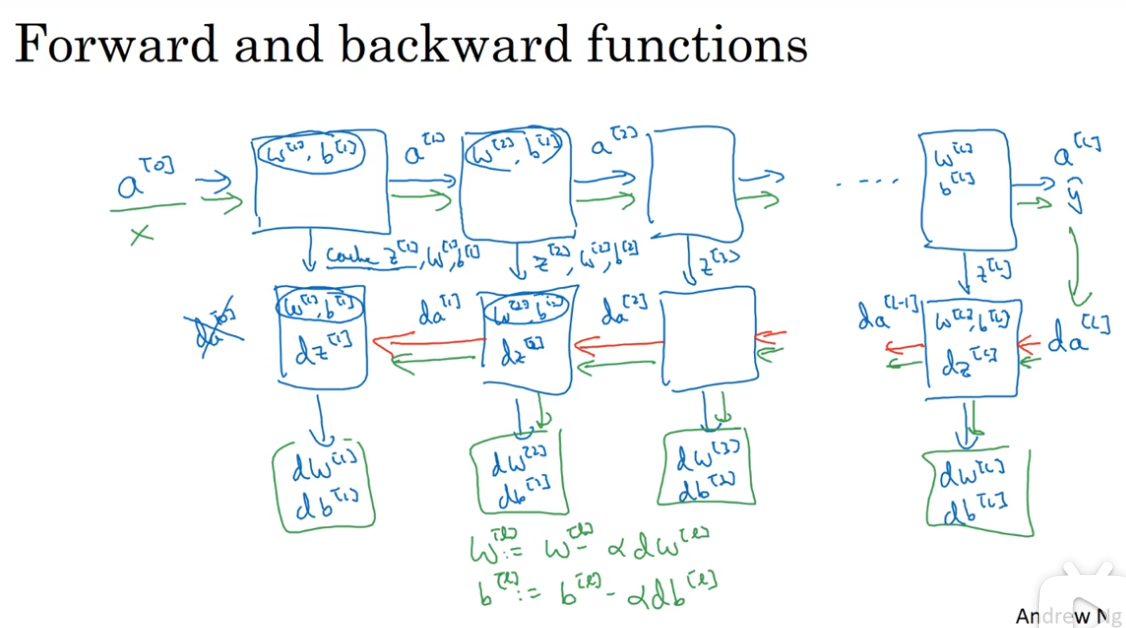 Forward and backward functions
a^[0] w^[1], b^[1] a^[1] w^[2], b^[1] a^[2] .... w^[L] a^[L]
x b^[L] ŷ
cache z^[1], w^[1], b^[1] z^[2], w^[2], b^[2] z^[3] z^[L]
da^[0] w^[1], b^[1] da^[1] w^[2], b^[2] da^[2] da^[L-1] w^[L], b^[L] da^[L]
dz^[1] dz^[2] dz^[L]
dw^[1] dw^[2] dw^[3] dw^[L]
db^[1] db^[2] db^[3] db^[L]
w^[l] := w^[l] - αdw^[l]
b^[l] := b^[l] - αdb^[l]
Andrew Ng